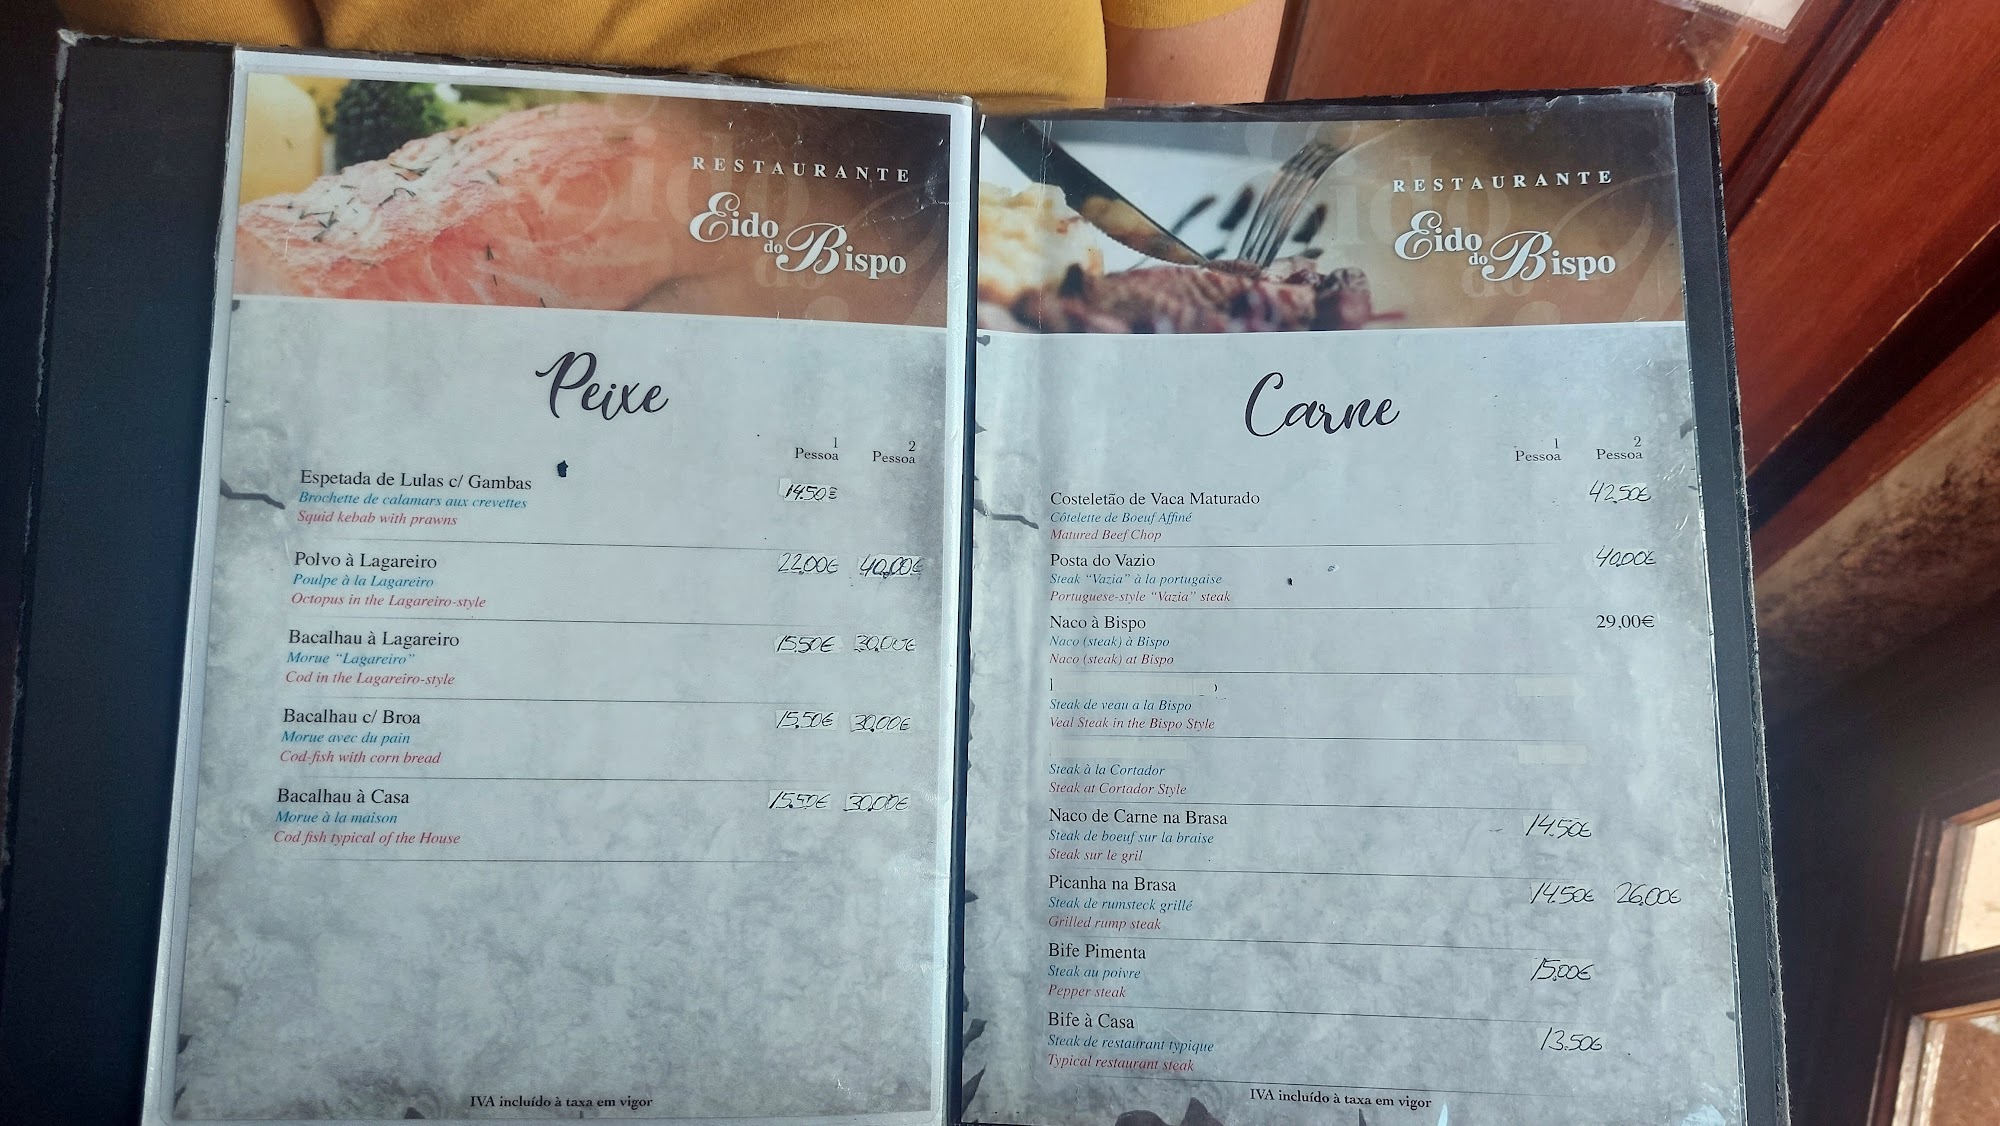 RESTAURANTE
Eido do Bispo
Peixe
1 Pessoa
2 Pessoa
Espetada de Lulas c/ Gambas 14.50€
Brochette de calamars aux crevettes
Squid kebab with prawns
Polvo à Lagareiro 22,00€ 40,00€
Poulpe à la Lagareiro
Octopus in the Lagareiro-style
Bacalhau à Lagareiro 15,50€ 30,00€
Morue “Lagareiro”
Cod in the Lagareiro-style
Bacalhau c/ Broa 15,50€ 30,00€
Morue avec du pain
Cod-fish with corn bread
Bacalhau à Casa 15,50€ 30,00€
Morue à la maison
Cod fish typical of the House
IVA incluído à taxa em vigor
RESTAURANTE
Eido do Bispo
Carne
1 Pessoa
2 Pessoa
Costeletão de Vaca Maturado 42,50€
Côtelette de Boeuf Affiné
Matured Beef Chop
Posta do Vazio 40,00€
Steak “Vazia” à la portugaise
Portuguese-style “Vazia” steak
Naco à Bispo 29,00€
Naco (steak) à Bispo
Naco (steak) at Bispo
Steak de veau a la Bispo
Veal Steak in the Bispo Style
Steak à la Cortador
Steak at Cortador Style
Naco de Carne na Brasa 14.50€
Steak de boeuf sur la braise
Steak sur le gril
Picanha na Brasa 14.50€ 26,00€
Steak de rumsteck grillé
Grilled rump steak
Bife Pimenta 15,00€
Steak au poivre
Pepper steak
Bife à Casa 13.50€
Steak de restaurant typique
Typical restaurant steak
IVA incluído à taxa em vigor